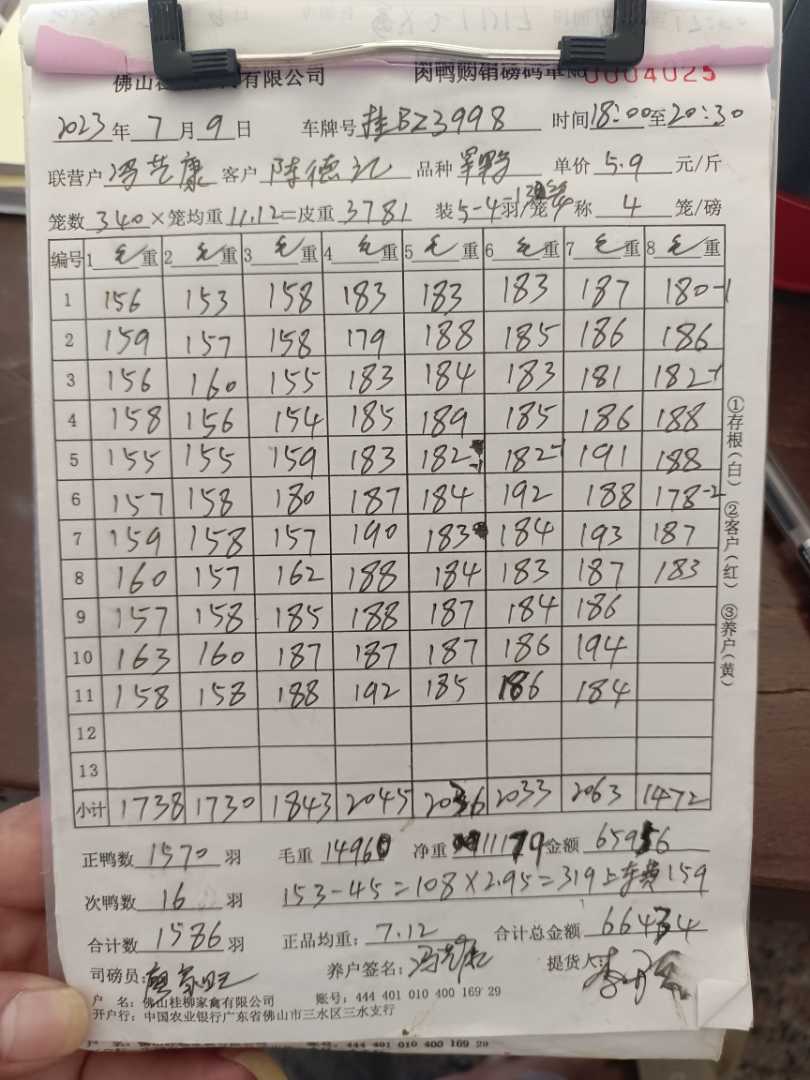 佛山桂柳家禽有限公司 肉鸭购销磅码单No 0004025
2023年7月9日 车牌号 桂BZ3998 时间18:00至20:30
联营户 冯艺康 客户 陈德记 品种 单价 5.9 元/斤
笼数 340×笼均重 11.12=皮重 3781 装5-4羽/笼 称 4 笼/磅
编号 1 毛重 2 毛重 3 毛重 4 毛重 5 毛重 6 毛重 7 毛重 8 毛重
1 156 153 158 183 183 183 187 180-1
2 159 157 158 179 188 185 186 186
3 156 160 155 183 184 183 181 182-1
4 158 156 154 185 189 185 186 188
5 155 155 159 183 182-1 182-1 191 188
6 157 158 180 187 184 192 188 178-2
7 159 158 157 190 183 184 193 187
8 160 157 162 188 184 183 187 183
9 157 158 185 188 187 184 186
10 163 160 187 187 187 186 194
11 158 158 188 192 185 186 184
12
13
小计 1738 1730 1843 2045 2036 2033 2063 1472
①存根(白) ②客户(红) ③养户(黄)
正鸭数 1570 羽 毛重 14960 净重 11179 金额 65956
次鸭数 16 羽 153-45=108×2.95=319上车费159
合计数 1586 羽 正品均重: 7.12 合计总金额 66434
司磅员: 养户签名: 冯艺康 提货人:
户 名: 佛山桂柳家禽有限公司 账号: 444 401 010 400 169 29
开户行: 中国农业银行广东省佛山市三水区三水支行
444 401 010 400 169 29